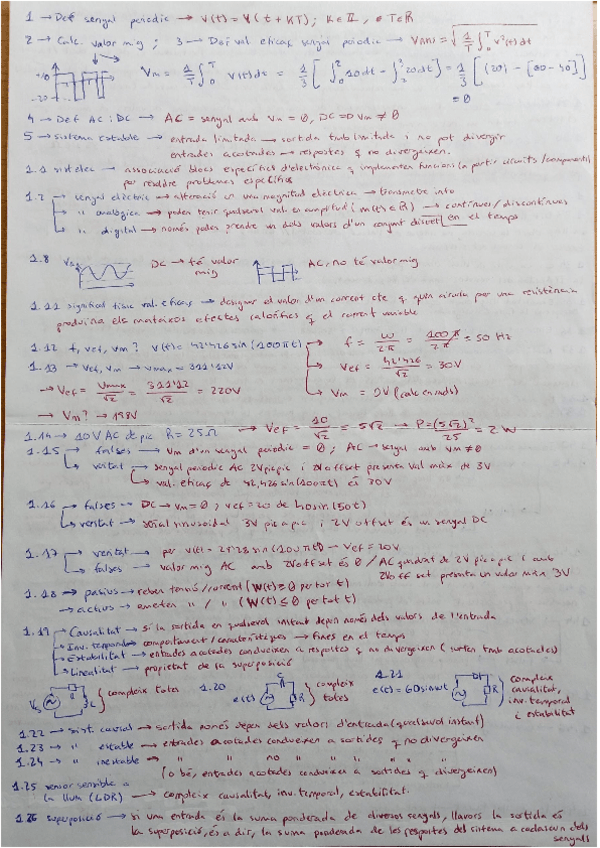 1 → Def senyal periodic → v(t) = v(t + KT); K ∈ Z, T ∈ R
2 → Calc. valor mig; 3 → Def val. eficaç senyal periodic → VRMS = √(1/T ∫₀ᵀ v²(t)dt
Vm = 1/T ∫₀ᵀ v(t)dt = 1/3 [∫₀² 10dt - ∫₂³ 20dt] = 1/3 [(20) - [60-40]]
= 0
4 → Def AC i DC → AC = senyal amb Vm = 0, DC => Vm ≠ 0
5 → sistema estable → entrada limitada → sortida tmb limitada i no pot divergir
entrades acotades → respostes q no divergeixen.
1.1 sist elec → associació blocs específics d'electrònica q implementen funcions (a partir circuits/components)
per resoldre problemes específics
1.2 → senyal elèctric → alteració en una magnitud elèctrica → transmetre info
→ " analògica → poden tenir qualsevol val. en amplitud → continues/discontinues
→ " digital → només poden prendre un dels valors d'un conjunt discret en el temps
1.8 DC → té valor mig AC, no té valor mig
1.11 significat físic val. eficaç → designar el valor d'un corrent cte q quan circula per una resistència
produiria els mateixos efectes calorífics q el corrent variable
1.12 f, vef, vm? v(t) = 42'426 sin(100πt) → f = ω/2π = 100π/2π = 50 Hz
1.13 → vef, vm → vmax = 311'12V → Vef = 42'426/√2 = 30V
→ Vef = Vmax/√2 = 311'12/√2 = 220V → Vm = 0V
→ Vm? → 198V
1.14 → 10V AC de pic R = 25Ω → Vef = 10/√2 = 5√2 → P = (5√2)²/25 = 2W
1.15 → falses → Vm d'un senyal periodic = 0; AC → senyal amb Vm ≠ 0
→ veritat → senyal periodic AC 2Vpicpic i 2V offset presenta val. màx de 3V
→ val. eficaç de 42,426 sin(100πt) és 30V
1.16 → falses → DC → Vm = 0; vef = 20 de 40 sin(50t)
→ veritat → señal sinusoidal 3V pic a pic i 2V offset és un senyal DC
1.17 → veritat → per v(t) = 28'28 sin(100πt) → Vef = 20V
→ falses → valor mig AC amb 2V offset és 0 / AC quadrat de 2V pic a pic i amb
2V off set presenta un valor màx 3V
1.18 → passius → reben tensió/corrent (W(t) ≥ 0 per tot t)
→ actius → emeten " / " (W(t) ≤ 0 per tot t)
1.19 → Causalitat → si la sortida en qualsevol instant depen només dels valors de l'entrada
→ Inv. temporal → comportament/característiques → fixes en el temps
→ Estabilitat → entrades acotades condueixen a respostes q no divergeixen (surten tmb acotades)
→ Linealitat → propietat de la superposició
Vs L } compleix totes 1.20 e(t) C R } compleix totes 1.21 e(t) = 60 sinωt R } compleix causalitat, inv. temporal i estabilitat
1.22 → sist. causal → sortida només depen dels valors d'entrada (qualsevol instant)
1.23 → " estable → entrades acotades condueixen a sortides q no divergeixen
1.24 → " inestable → " " no " " " " "
(o bé, entrades acotades condueixen a sortides q divergeixen)
1.25 sensor sensible a la llum (LDR) → compleix causalitat, inv. temporal, estabilitat.
1.26 superposició → si una entrada és la suma ponderada de diversos senyals, llavors la sortida és
la superposició, és a dir, la suma ponderada de les respostes del sistema a cadascun dels
senyals